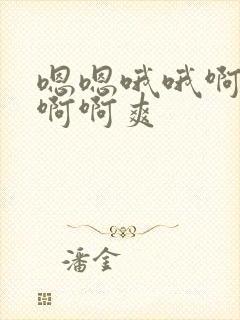 嗯嗯哦哦啊
啊啊爽
潘金